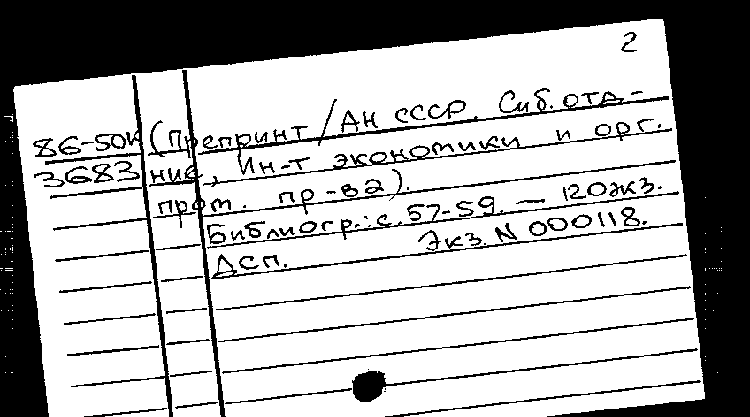 2
86-50к (Препринт/АН СССР. Сиб. отд-
3683 ние, Ин-т экономики и орг.
пром. пр-ва).
Библиогр.: с. 57-59. — 120экз.
ДСП. Экз. N 000118.